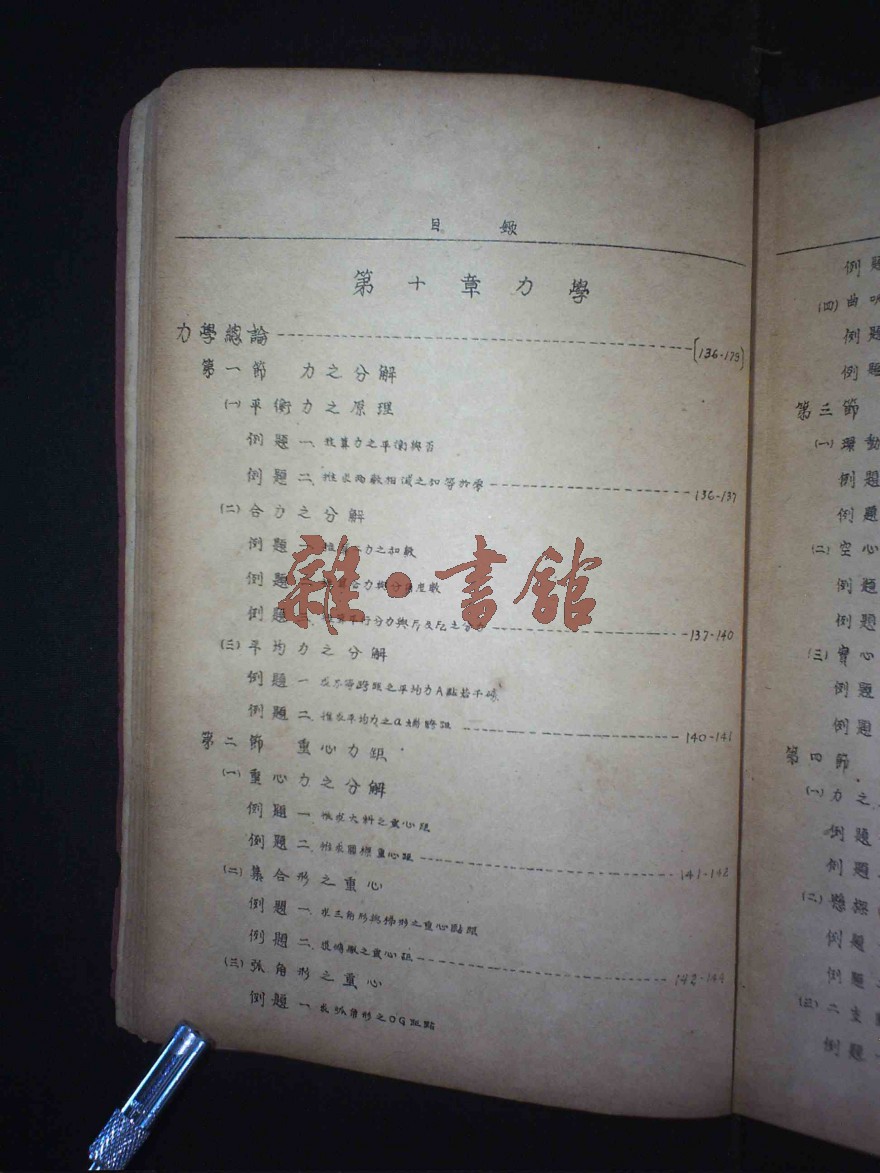 目 錄
第十章力學
力學總論 [136-179]
第一節 力之分解
(一)平衡力之原理
例題一、核算力之平衡與否
例題二、推求兩數相減之和等於零 136-137
(二)合力之分解
例題一、二力之和數
例題 合力與 度數
例題 平行分力與F₁及F₂之 137-140
(三)平均力之分解
例題一 求不等跨距之平均力A點若干磅
例題二、推求平均力之a端跨距 140-141
第二節 重心力距
(一)重心力之分解
例題一、推求大料之重心距
例題二、推求 重心距 141-142
(二)集合形之重心
例題一、求三角形與梯形之重心點距
例題二、 之重心距 142-144
(三)弧角形之重心
例題一 求弧角形之OG距點
雜·書館
例題
(四)曲
例題
例題
第三節
(一)環動
例題
例題
(二)空心
例題
例題
(三)實心
例題
例題
第四節
(一)力之
例題
例題
(二)懸
例題
例題
(三)二支
例題